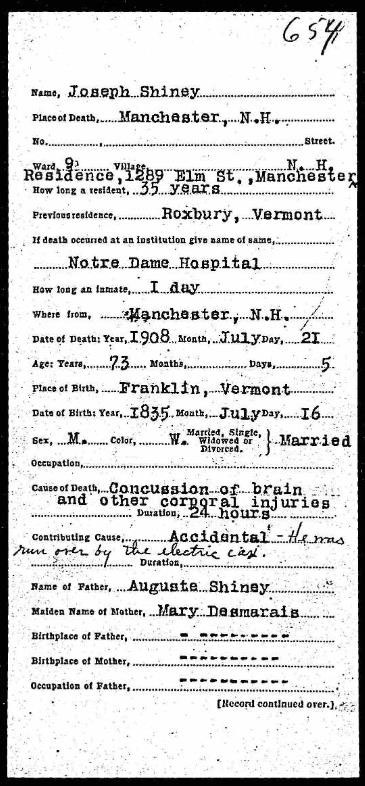 654
Name, Joseph Shiney
Place of Death, Manchester, N.H.
No. , Street.
Ward 9 Village N. H.
Residence, 1289 Elm St., Manchester
How long a resident, 35 years
Previous residence, Roxbury, Vermont
If death occurred at an institution give name of same,
Notre Dame Hospital
How long an inmate, I day
Where from, Manchester, N.H.
Date of Death: Year, 1908 Month, July Day, 21
Age: Years, 73 Months, Days, 5
Place of Birth, Franklin, Vermont
Date of Birth: Year, 1835 Month, July Day, 16
Sex, M. Color, W. Married, Single, Widowed or Divorced. } Married
Occupation,
Cause of Death, Concussion of brain
and other corporal injuries
Duration, 24 hours
Contributing Cause, Accidental - He was
run over by the electric cars.
Duration,
Name of Father, Auguste Shiney
Maiden Name of Mother, Mary Desmarais
Birthplace of Father, - ---------
Birthplace of Mother, ----------
Occupation of Father, ----------
[Record continued over.]